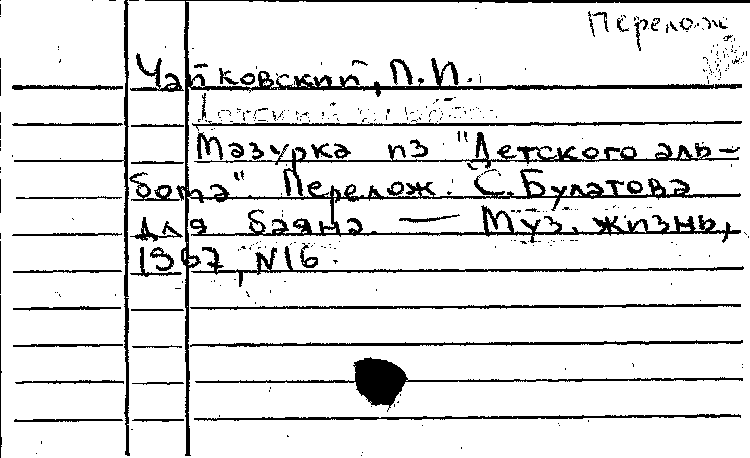 Перелож
Чайковский, П.И.
Детский альбом
Мазурка из "Детского аль-
бома". Перелож. С. Булатова
для баяна. — Муз. жизнь,
1967, №16.